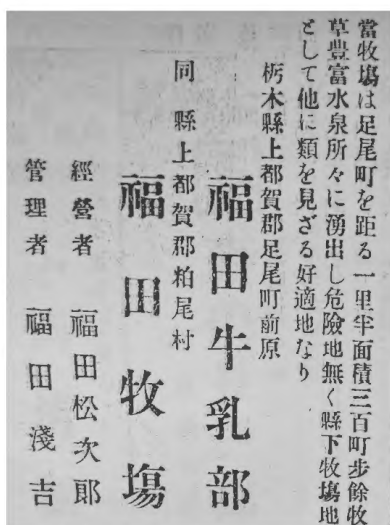 當牧塲は足尾町を距る一里半面積三百町歩餘牧
草豊富水泉所々に湧出し危險地無く縣下牧塲地
として他に類を見ざる好適地なり
栃木縣上都賀郡足尾町前原
福田牛乳部
同縣上都賀郡粕尾村
福田牧塲
經營者 福田松次郎
管理者 福田淺吉